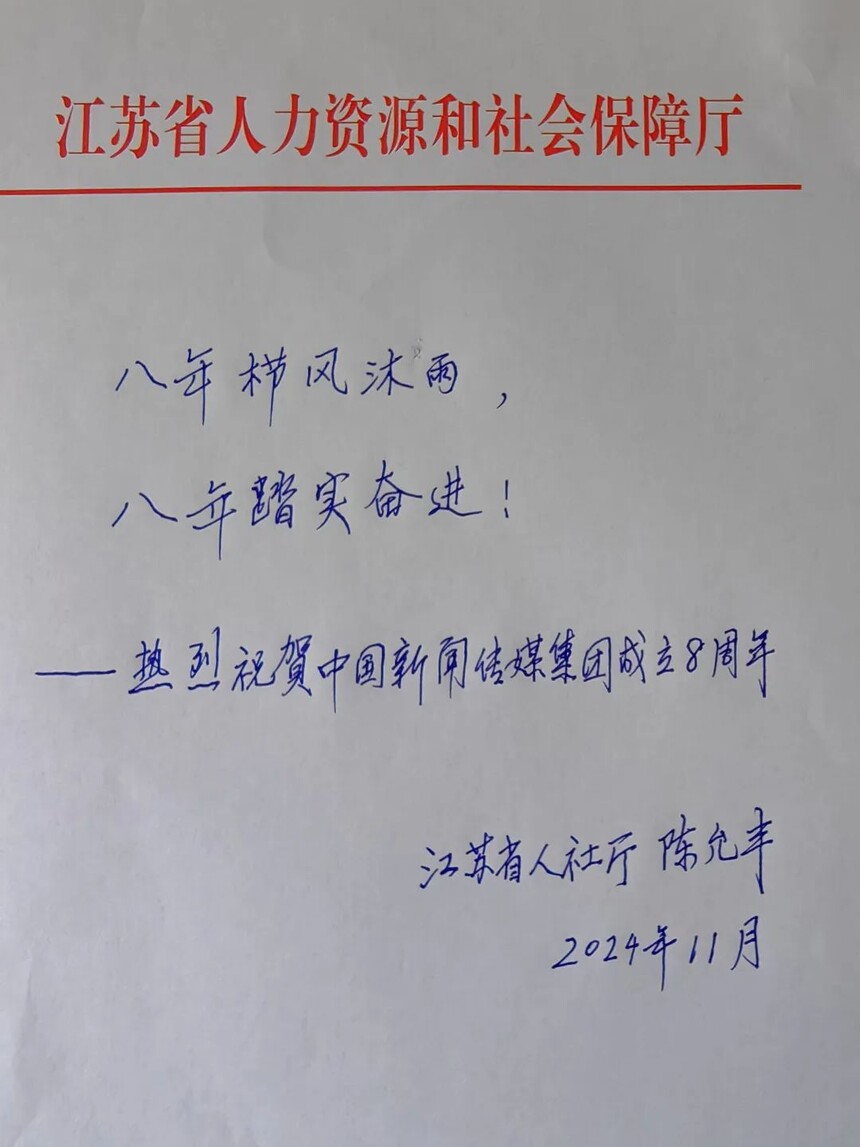 江苏省人力资源和社会保障厅
八年栉风沐雨，
八年踏实奋进！
——热烈祝贺中国新闻传媒集团成立8周年
江苏省人社厅 陈允丰
2024年11月